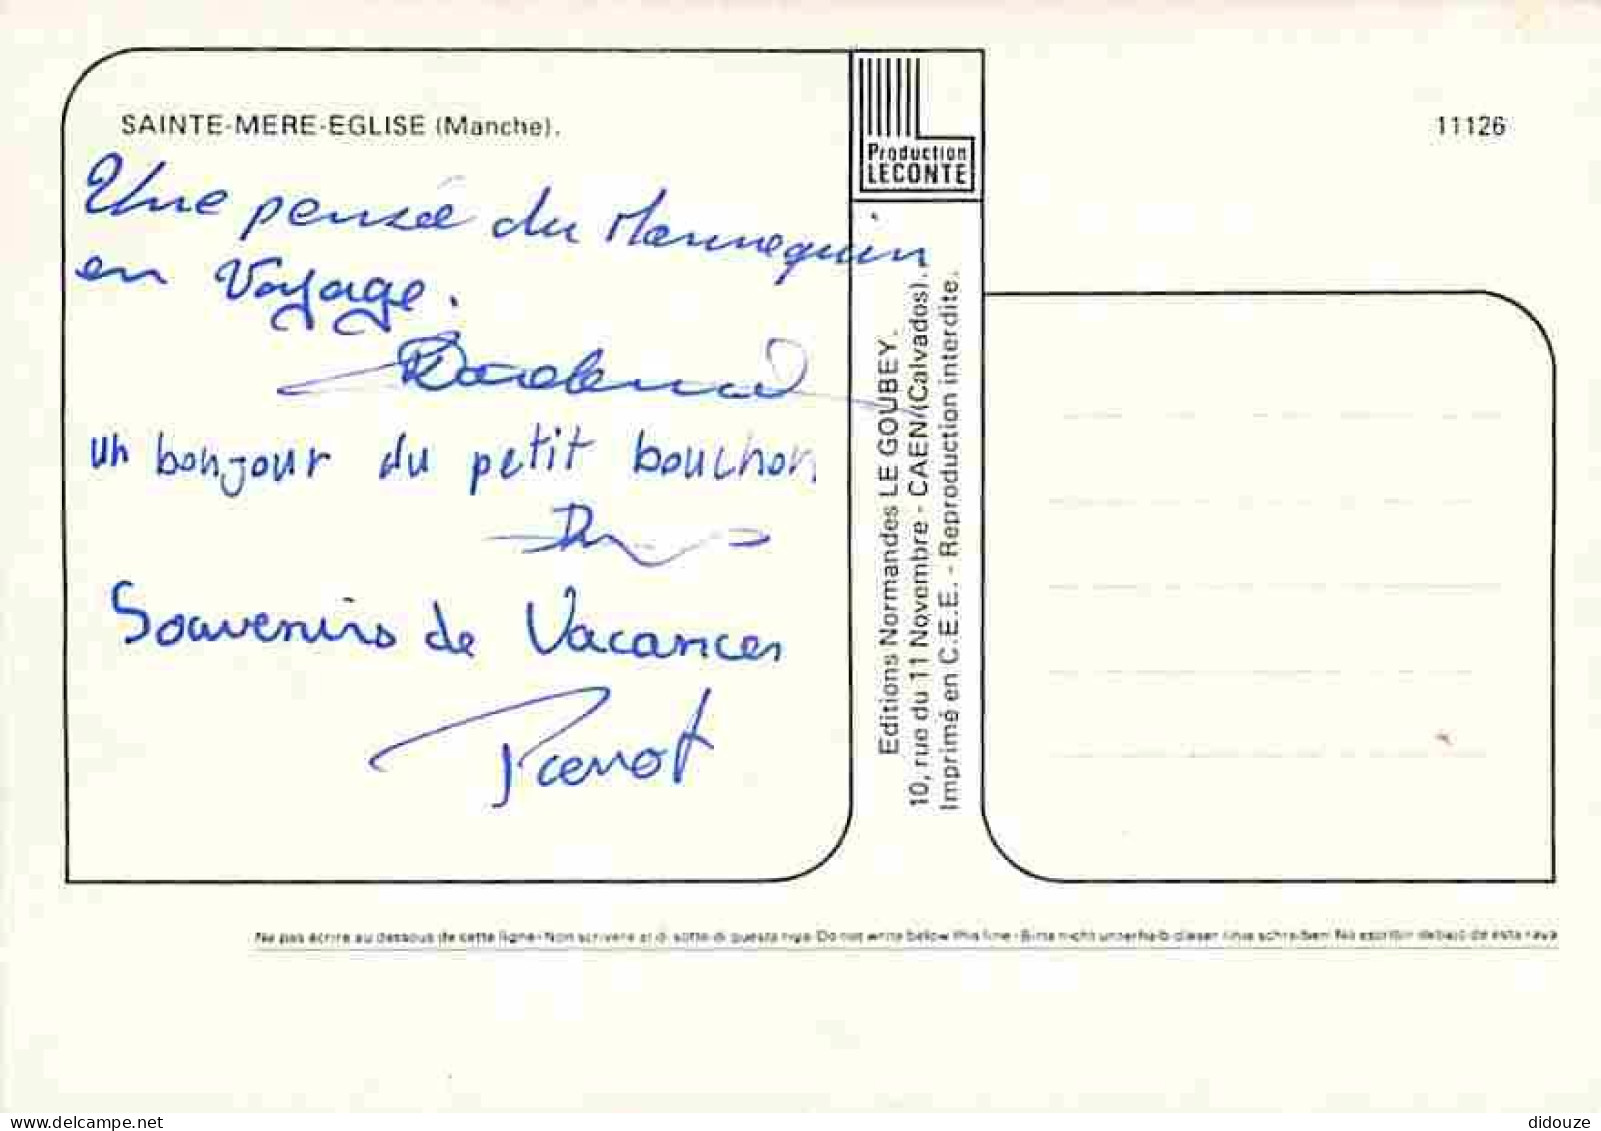 SAINTE-MERE-EGLISE (Manche).
11126
Production
LECONTE
Une pensée du Mannequin
en Voyage.
un bonjour du petit bouchon
Souvenirs de Vacances
Editions Normandes LE GOUBEY.
10, rue du 11 Novembre - CAEN (Calvados).
Imprimé en C.E.E. - Reproduction interdite.
Ne pas écrire au dessous de cette ligne - Non scrivere al di sotto di questa riga - Do not write below this line - Bitte nicht unterhalb dieser linie schreiben - No escribir debajo de esta raya
delcampe.net
didouze